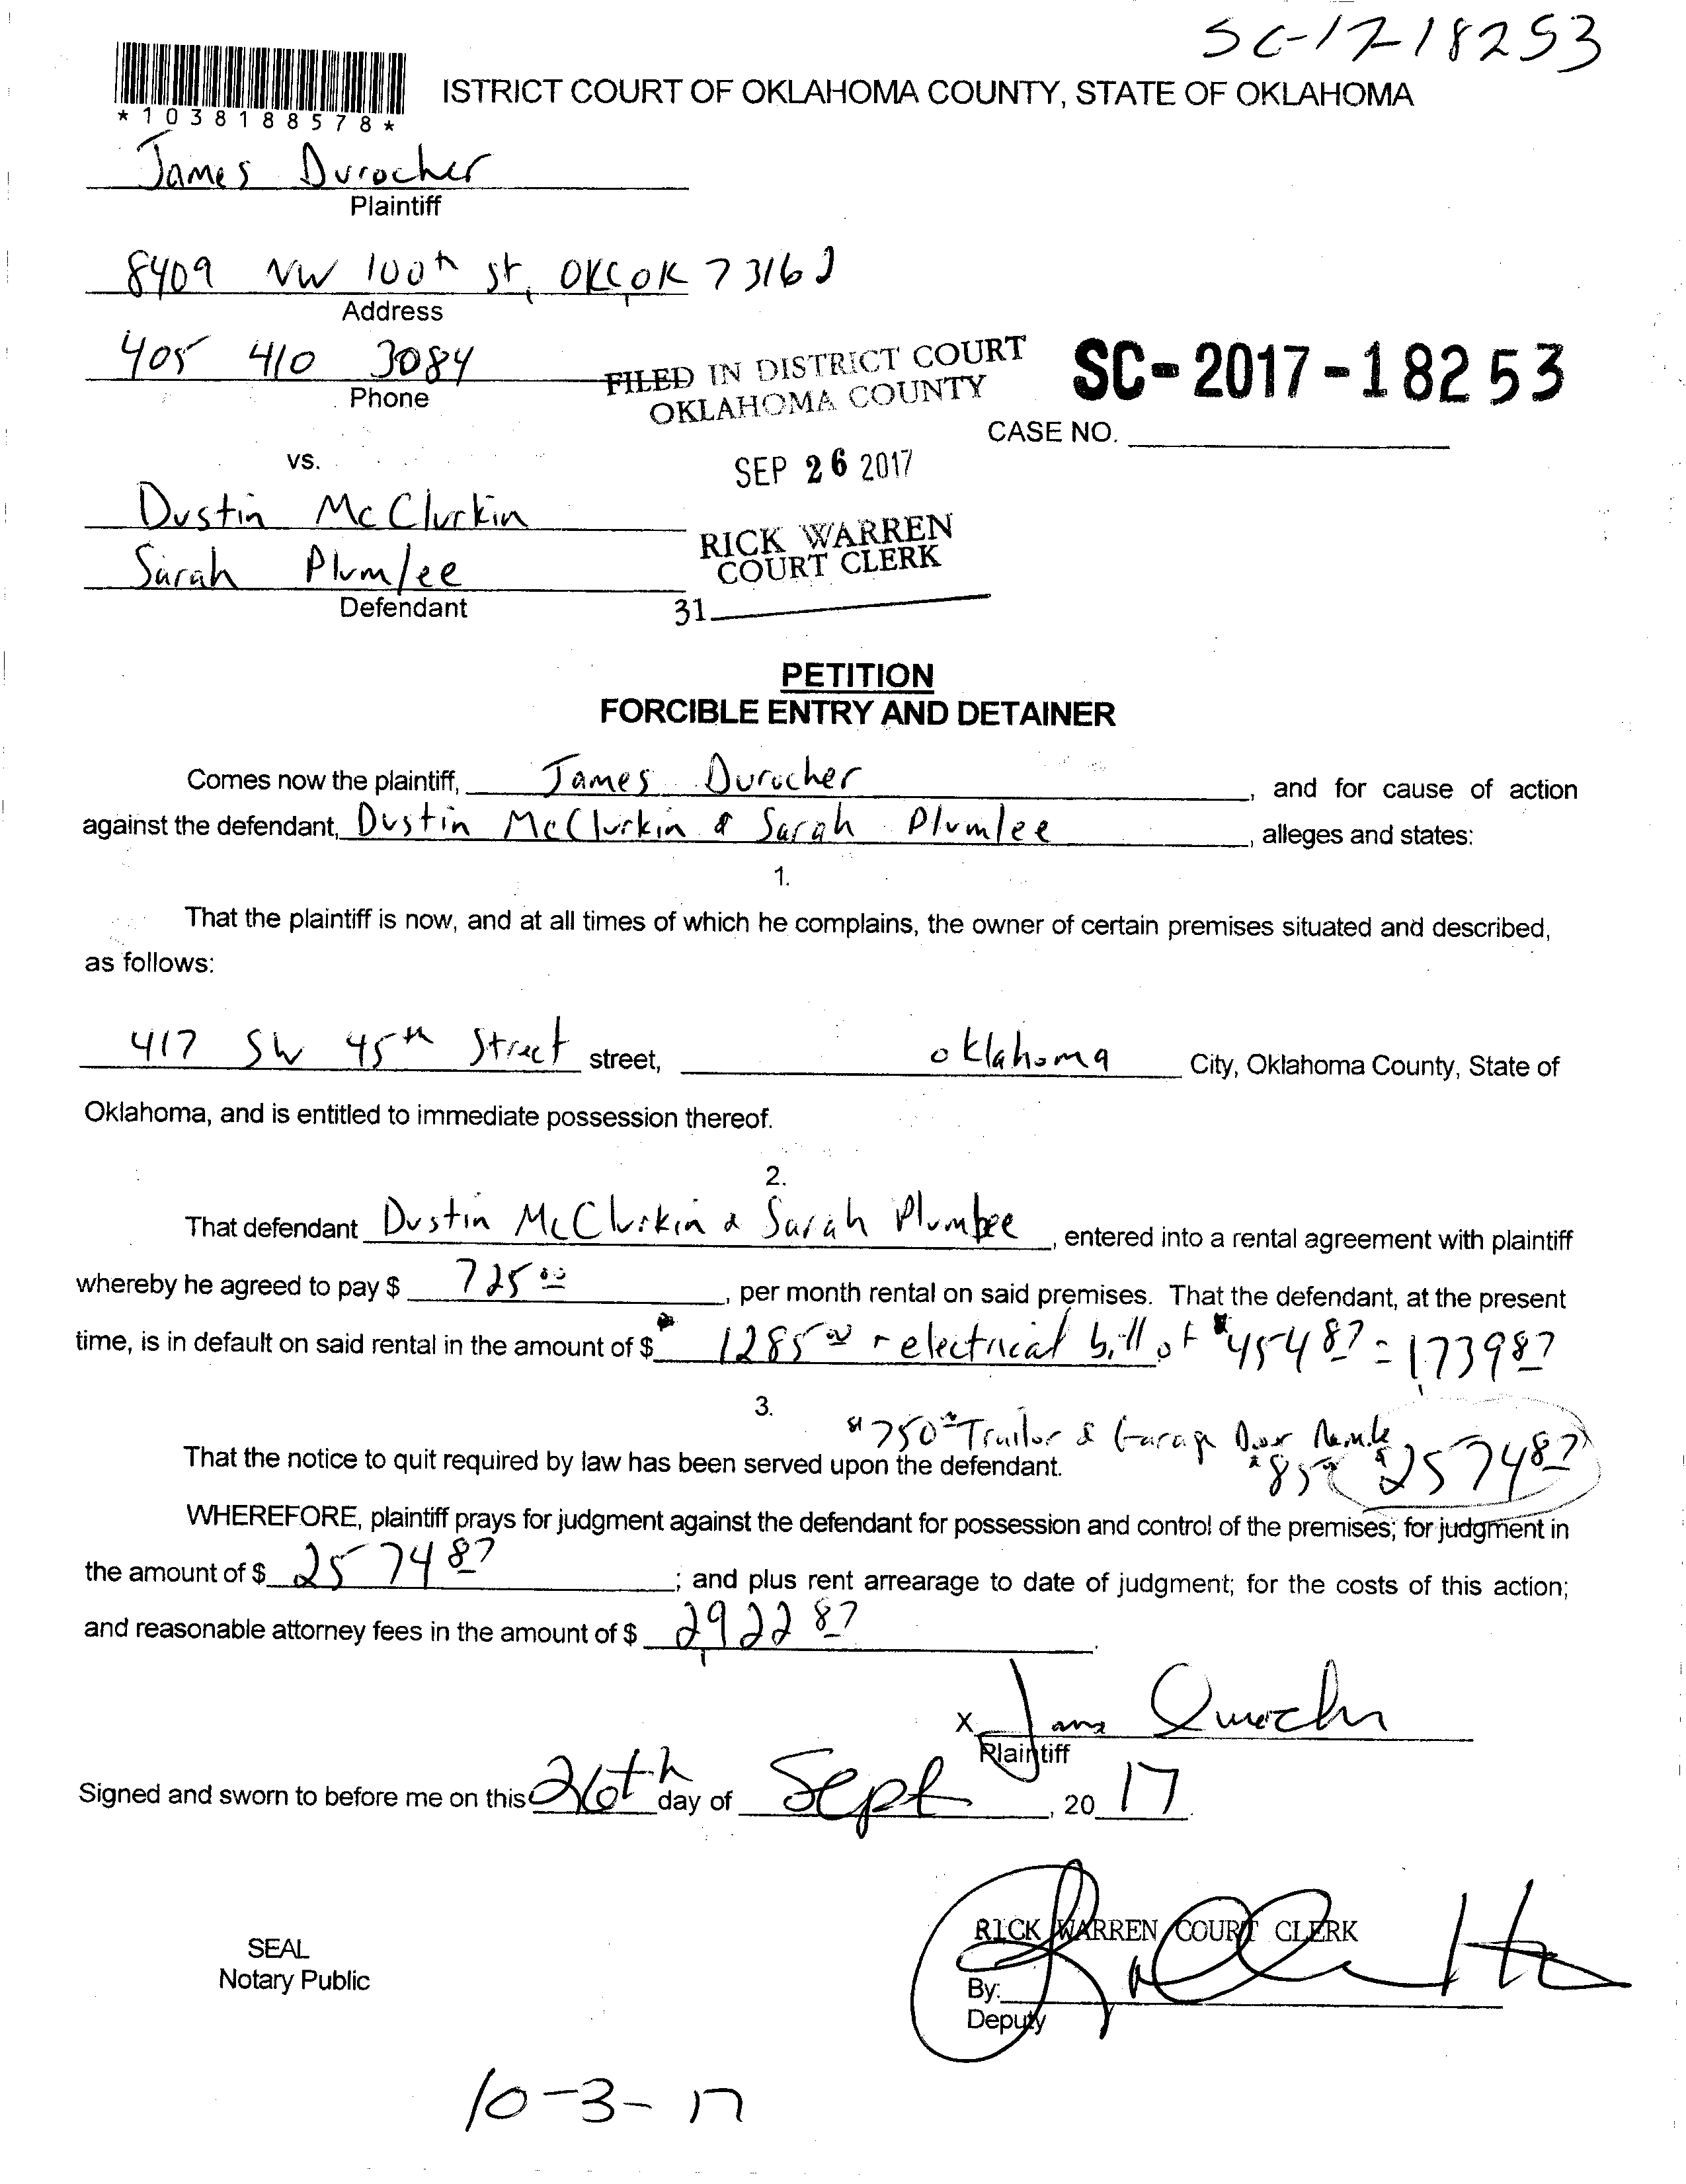 SC-17-18253
ISTRICT COURT OF OKLAHOMA COUNTY, STATE OF OKLAHOMA
*1038188578*
James Durocher
Plaintiff
8409 NW 100th St, OKC, OK 73162
Address
405 410 3084
Phone
FILED IN DISTRICT COURT
OKLAHOMA COUNTY
SC-2017-18253
CASE NO.
vs.
SEP 26 2017
Dustin McClurkin
RICK WARREN
COURT CLERK
Sarah Plumlee
Defendant
31
PETITION
FORCIBLE ENTRY AND DETAINER
Comes now the plaintiff, James Durocher, and for cause of action
against the defendant, Dustin McClurkin & Sarah Plumlee, alleges and states:
1.
That the plaintiff is now, and at all times of which he complains, the owner of certain premises situated and described,
as follows:
417 SW 45th Street street, Oklahoma City, Oklahoma County, State of
Oklahoma, and is entitled to immediate possession thereof.
2.
That defendant Dustin McClurkin & Sarah Plumlee, entered into a rental agreement with plaintiff
whereby he agreed to pay $ 725 00, per month rental on said premises. That the defendant, at the present
time, is in default on said rental in the amount of $ 1285 00 + electrical bill of $454 87 = 1739 87
3.
$750 00 Trailor & Garage Door Remote
That the notice to quit required by law has been served upon the defendant. $85 00 $2574 87
WHEREFORE, plaintiff prays for judgment against the defendant for possession and control of the premises; for judgment in
the amount of $ 2574 87; and plus rent arrearage to date of judgment; for the costs of this action;
and reasonable attorney fees in the amount of $ 2922 87.
X
Plaintiff
Signed and sworn to before me on this 26th day of Sept, 20 17.
RICK WARREN COURT CLERK
SEAL
Notary Public
By:
Deputy
10-3-17